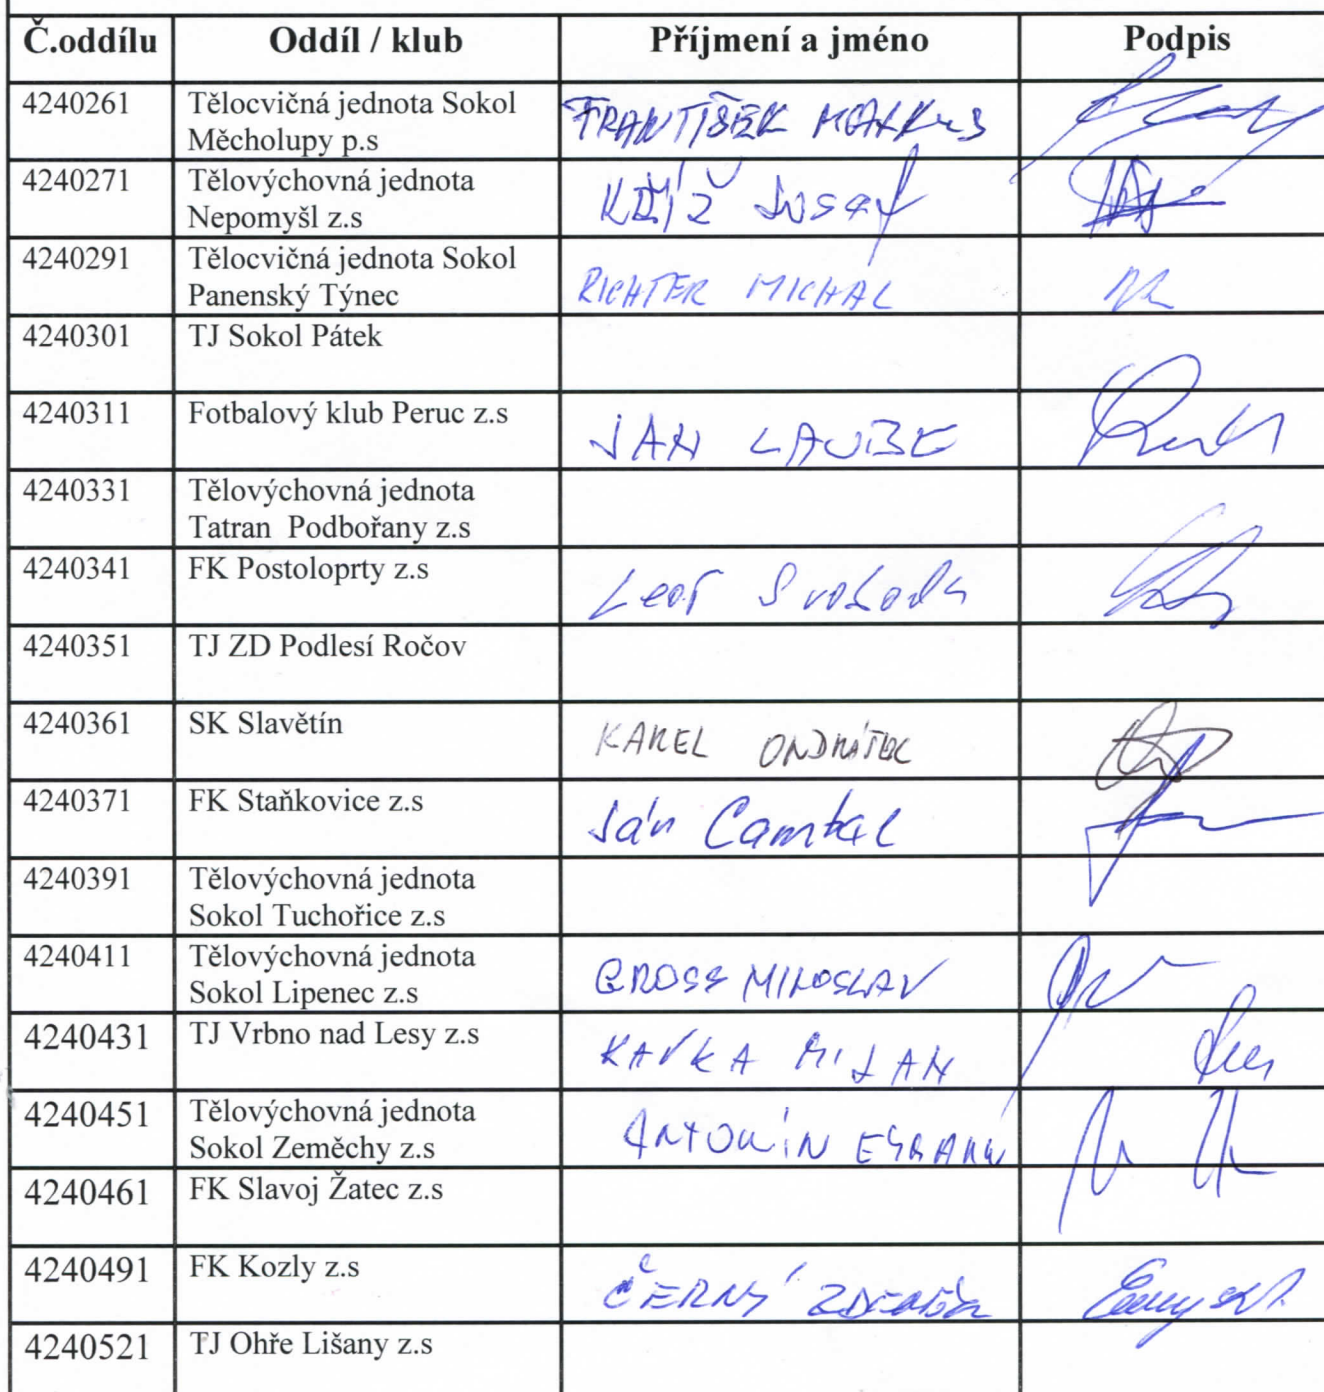 Č.oddílu Oddíl / klub Příjmení a jméno Podpis
4240261 Tělocvičná jednota Sokol
Měcholupy p.s FRANTIŠEK
4240271 Tělovýchovná jednota
Nepomyšl z.s KŘÍŽ Josef
4240291 Tělocvičná jednota Sokol
Panenský Týnec RICHTER MICHAL
4240301 TJ Sokol Pátek
4240311 Fotbalový klub Peruc z.s
JAN LAUBE
4240331 Tělovýchovná jednota
Tatran Podbořany z.s
4240341 FK Postoloprty z.s
Leoš Svoboda
4240351 TJ ZD Podlesí Ročov
4240361 SK Slavětín
KAREL
4240371 FK Staňkovice z.s
Ján Cambal
4240391 Tělovýchovná jednota
Sokol Tuchořice z.s
4240411 Tělovýchovná jednota
Sokol Lipenec z.s GROSS MIROSLAV
4240431 TJ Vrbno nad Lesy z.s
KAVKA MILAN
4240451 Tělovýchovná jednota
Sokol Zeměchy z.s ANTONÍN
4240461 FK Slavoj Žatec z.s
4240491 FK Kozly z.s
ČERNÝ ZDENĚK
4240521 TJ Ohře Lišany z.s